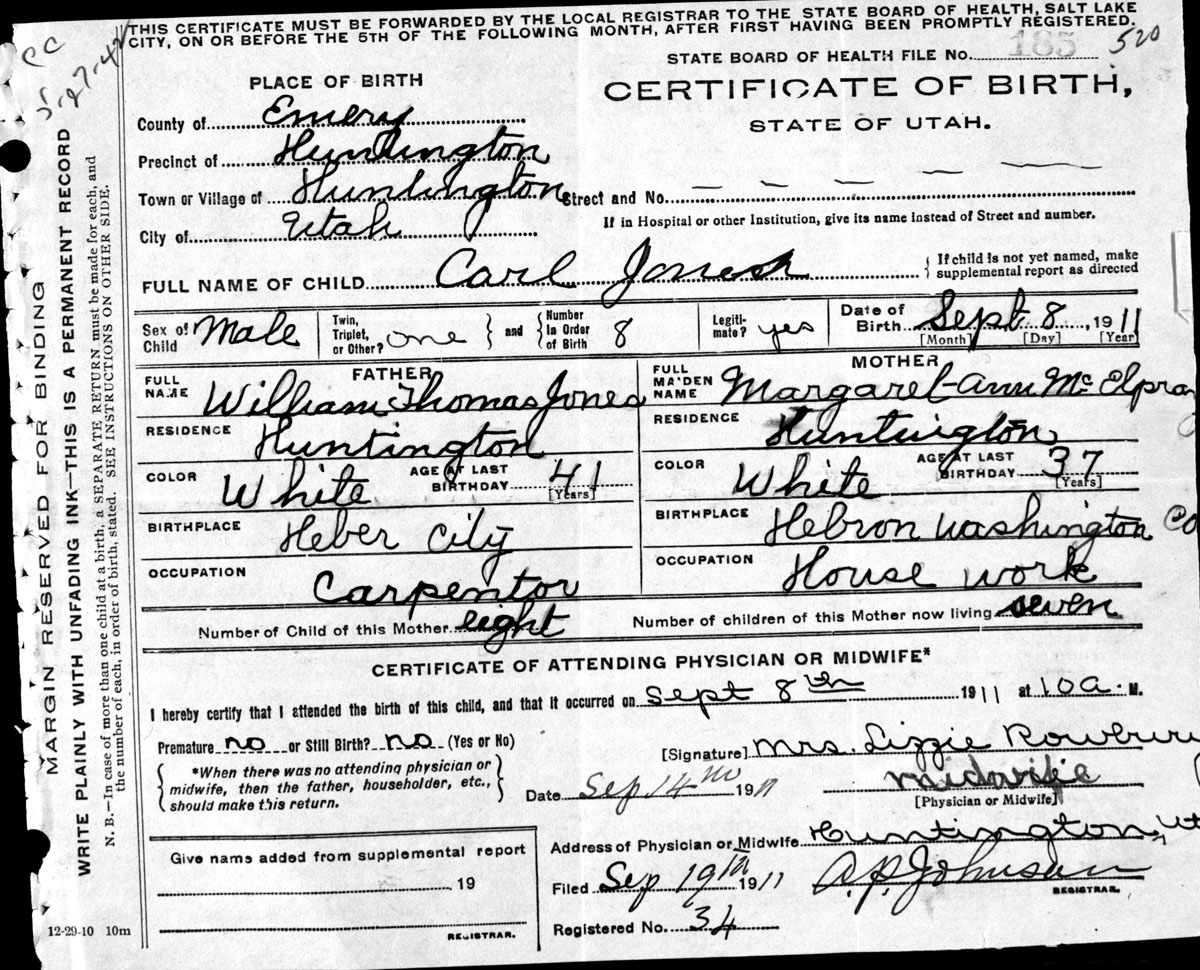 THIS CERTIFICATE MUST BE FORWARDED BY THE LOCAL REGISTRAR TO THE STATE BOARD OF HEALTH, SALT LAKE
CITY, ON OR BEFORE THE 5TH OF THE FOLLOWING MONTH, AFTER FIRST HAVING BEEN PROMPTLY REGISTERED.
CC
5-27-42
STATE BOARD OF HEALTH FILE No. 185 520
PLACE OF BIRTH
CERTIFICATE OF BIRTH,
STATE OF UTAH.
County of Emery
Precinct of Huntington
Town or Village of Huntington Street and No. — — — — —
City of Utah If in Hospital or other Institution, give its name instead of Street and number.
FULL NAME OF CHILD Carl Jones { If child is not yet named, make
supplemental report as directed
Sex of Child Male Twin, Triplet, or Other? one } and { Number In Order of Birth 8 Legiti-mate? yes Date of Birth Sept 8, 1911
[Month] [Day] [Year]
FATHER MOTHER
FULL NAME William Thomas Jones FULL MAIDEN NAME Margaret Ann McElpray
RESIDENCE Huntington RESIDENCE Huntington
COLOR White AGE AT LAST BIRTHDAY 41 [Years] COLOR White AGE AT LAST BIRTHDAY 37 [Years]
BIRTHPLACE Heber City BIRTHPLACE Hebron Washington Co
OCCUPATION Carpentor OCCUPATION House work
Number of Child of this Mother eight Number of children of this Mother now living seven
CERTIFICATE OF ATTENDING PHYSICIAN OR MIDWIFE*
I hereby certify that I attended the birth of this child, and that it occurred on Sept 8th 1911 at 10 a. M.
Premature no or Still Birth? no (Yes or No)
[Signature] Mrs. Lizzie
{ *When there was no attending physician or
midwife, then the father, householder, etc.,
should make this return. }
Date Sep 14 1911 midwife
[Physician or Midwife]
Address of Physician or Midwife Huntington, Ut
Give name added from supplemental report
19
REGISTRAR.
Filed Sep 19th 1911 A.P. Johnson
REGISTRAR.
Registered No. 34
MARGIN RESERVED FOR BINDING
WRITE PLAINLY WITH UNFADING INK—THIS IS A PERMANENT RECORD
N. B.—In case of more than one child at a birth, a SEPARATE RETURN must be made for each, and
the number of each, in order of birth, stated. SEE INSTRUCTIONS ON OTHER SIDE.
12-29-10 10m